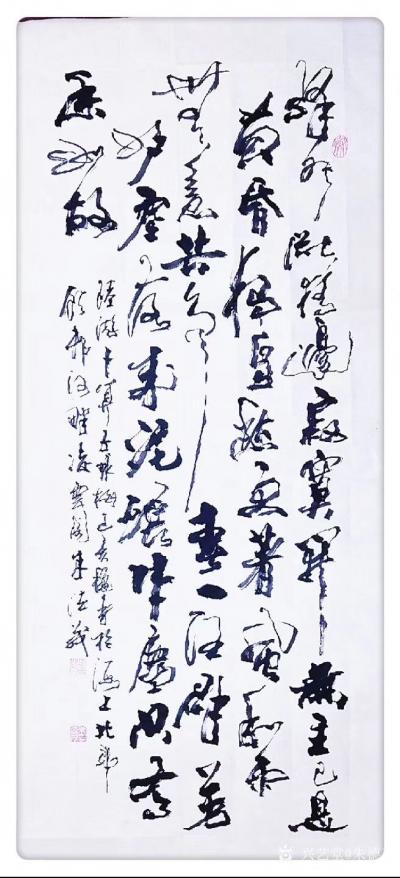 驛外斷橋邊寂寞開無主已是
黄昏獨自愁更著風和雨
無意苦争春一任群芳
妒零落成泥碾作塵只有
香如故
陸游卜算子咏梅於海上北
河畔凌雲閣朱德義
兴艺堂@朱德